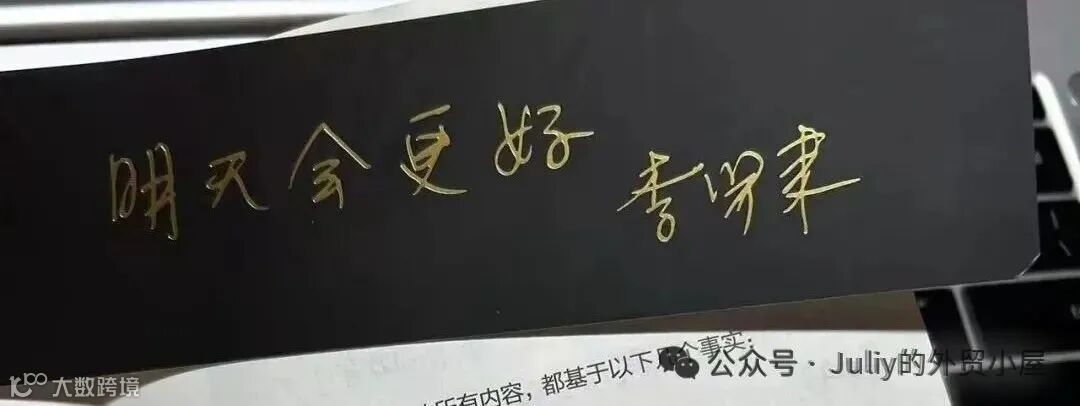 明天会更好
李
所有内容，都基于以下几个事实：
公众号·Juliy的外贸小屋
大数跨境